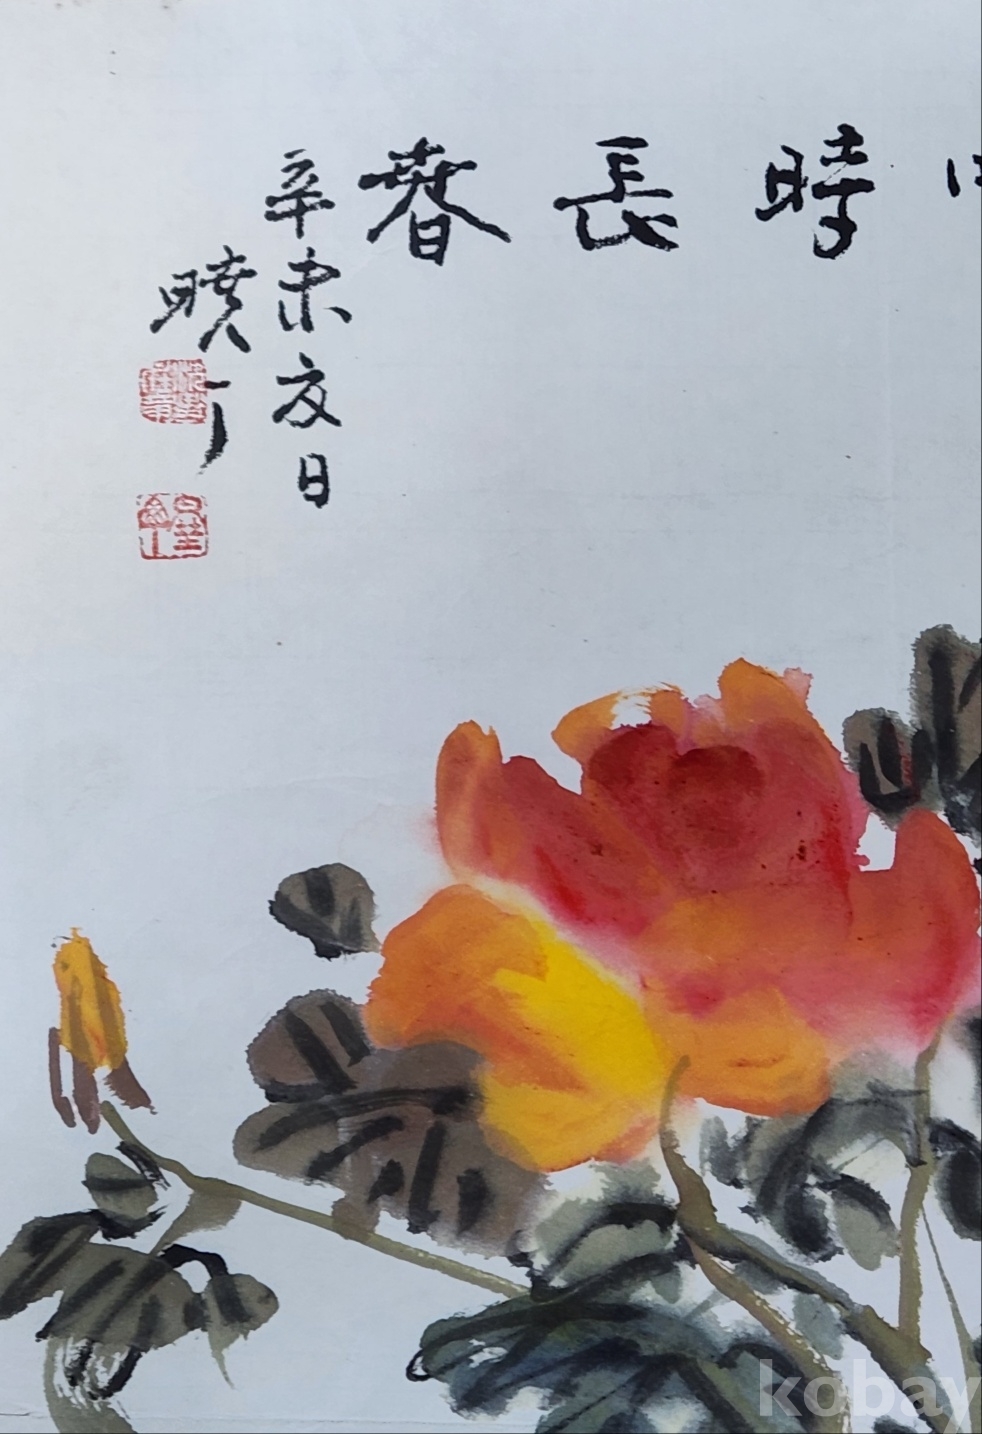 時長春
辛未夏日
曉丁
kobay